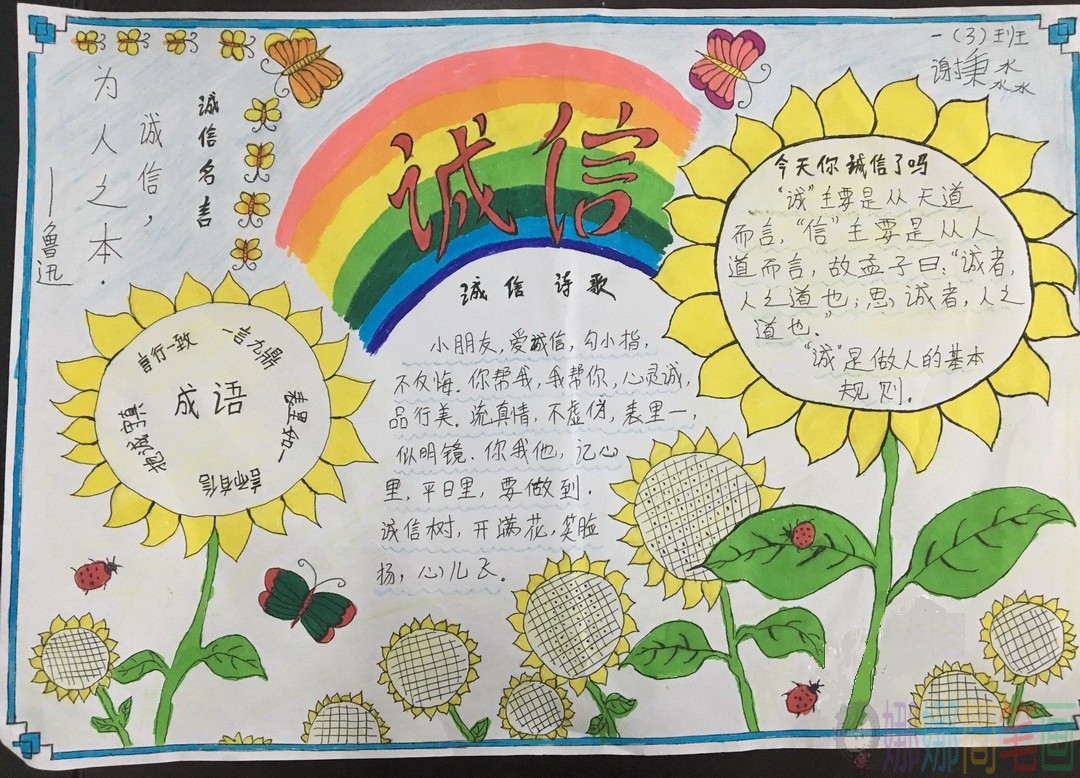 一(3)班
谢淼
诚信
诚信名言
诚信,
为人之本.
—鲁迅
成语
言行一致
一言九鼎
表里如一
言而有信
抱诚守真
诚信诗歌
小朋友,爱诚信,勾小指,
不反悔.你帮我,我帮你,心灵诚,
品行美.流真情,不虚伪,表里一,
似明镜.你我他,记心
里,平日里,要做到.
诚信树,开满花,笑脸
扬,心儿飞.
今天你诚信了吗
“诚”主要是从天道
而言,“信”主要是从人
道而言,故孟子曰:“诚者,
人之道也;思诚者,人之
道也.”
“诚”是做人的基本
规则.
娜娜简笔画